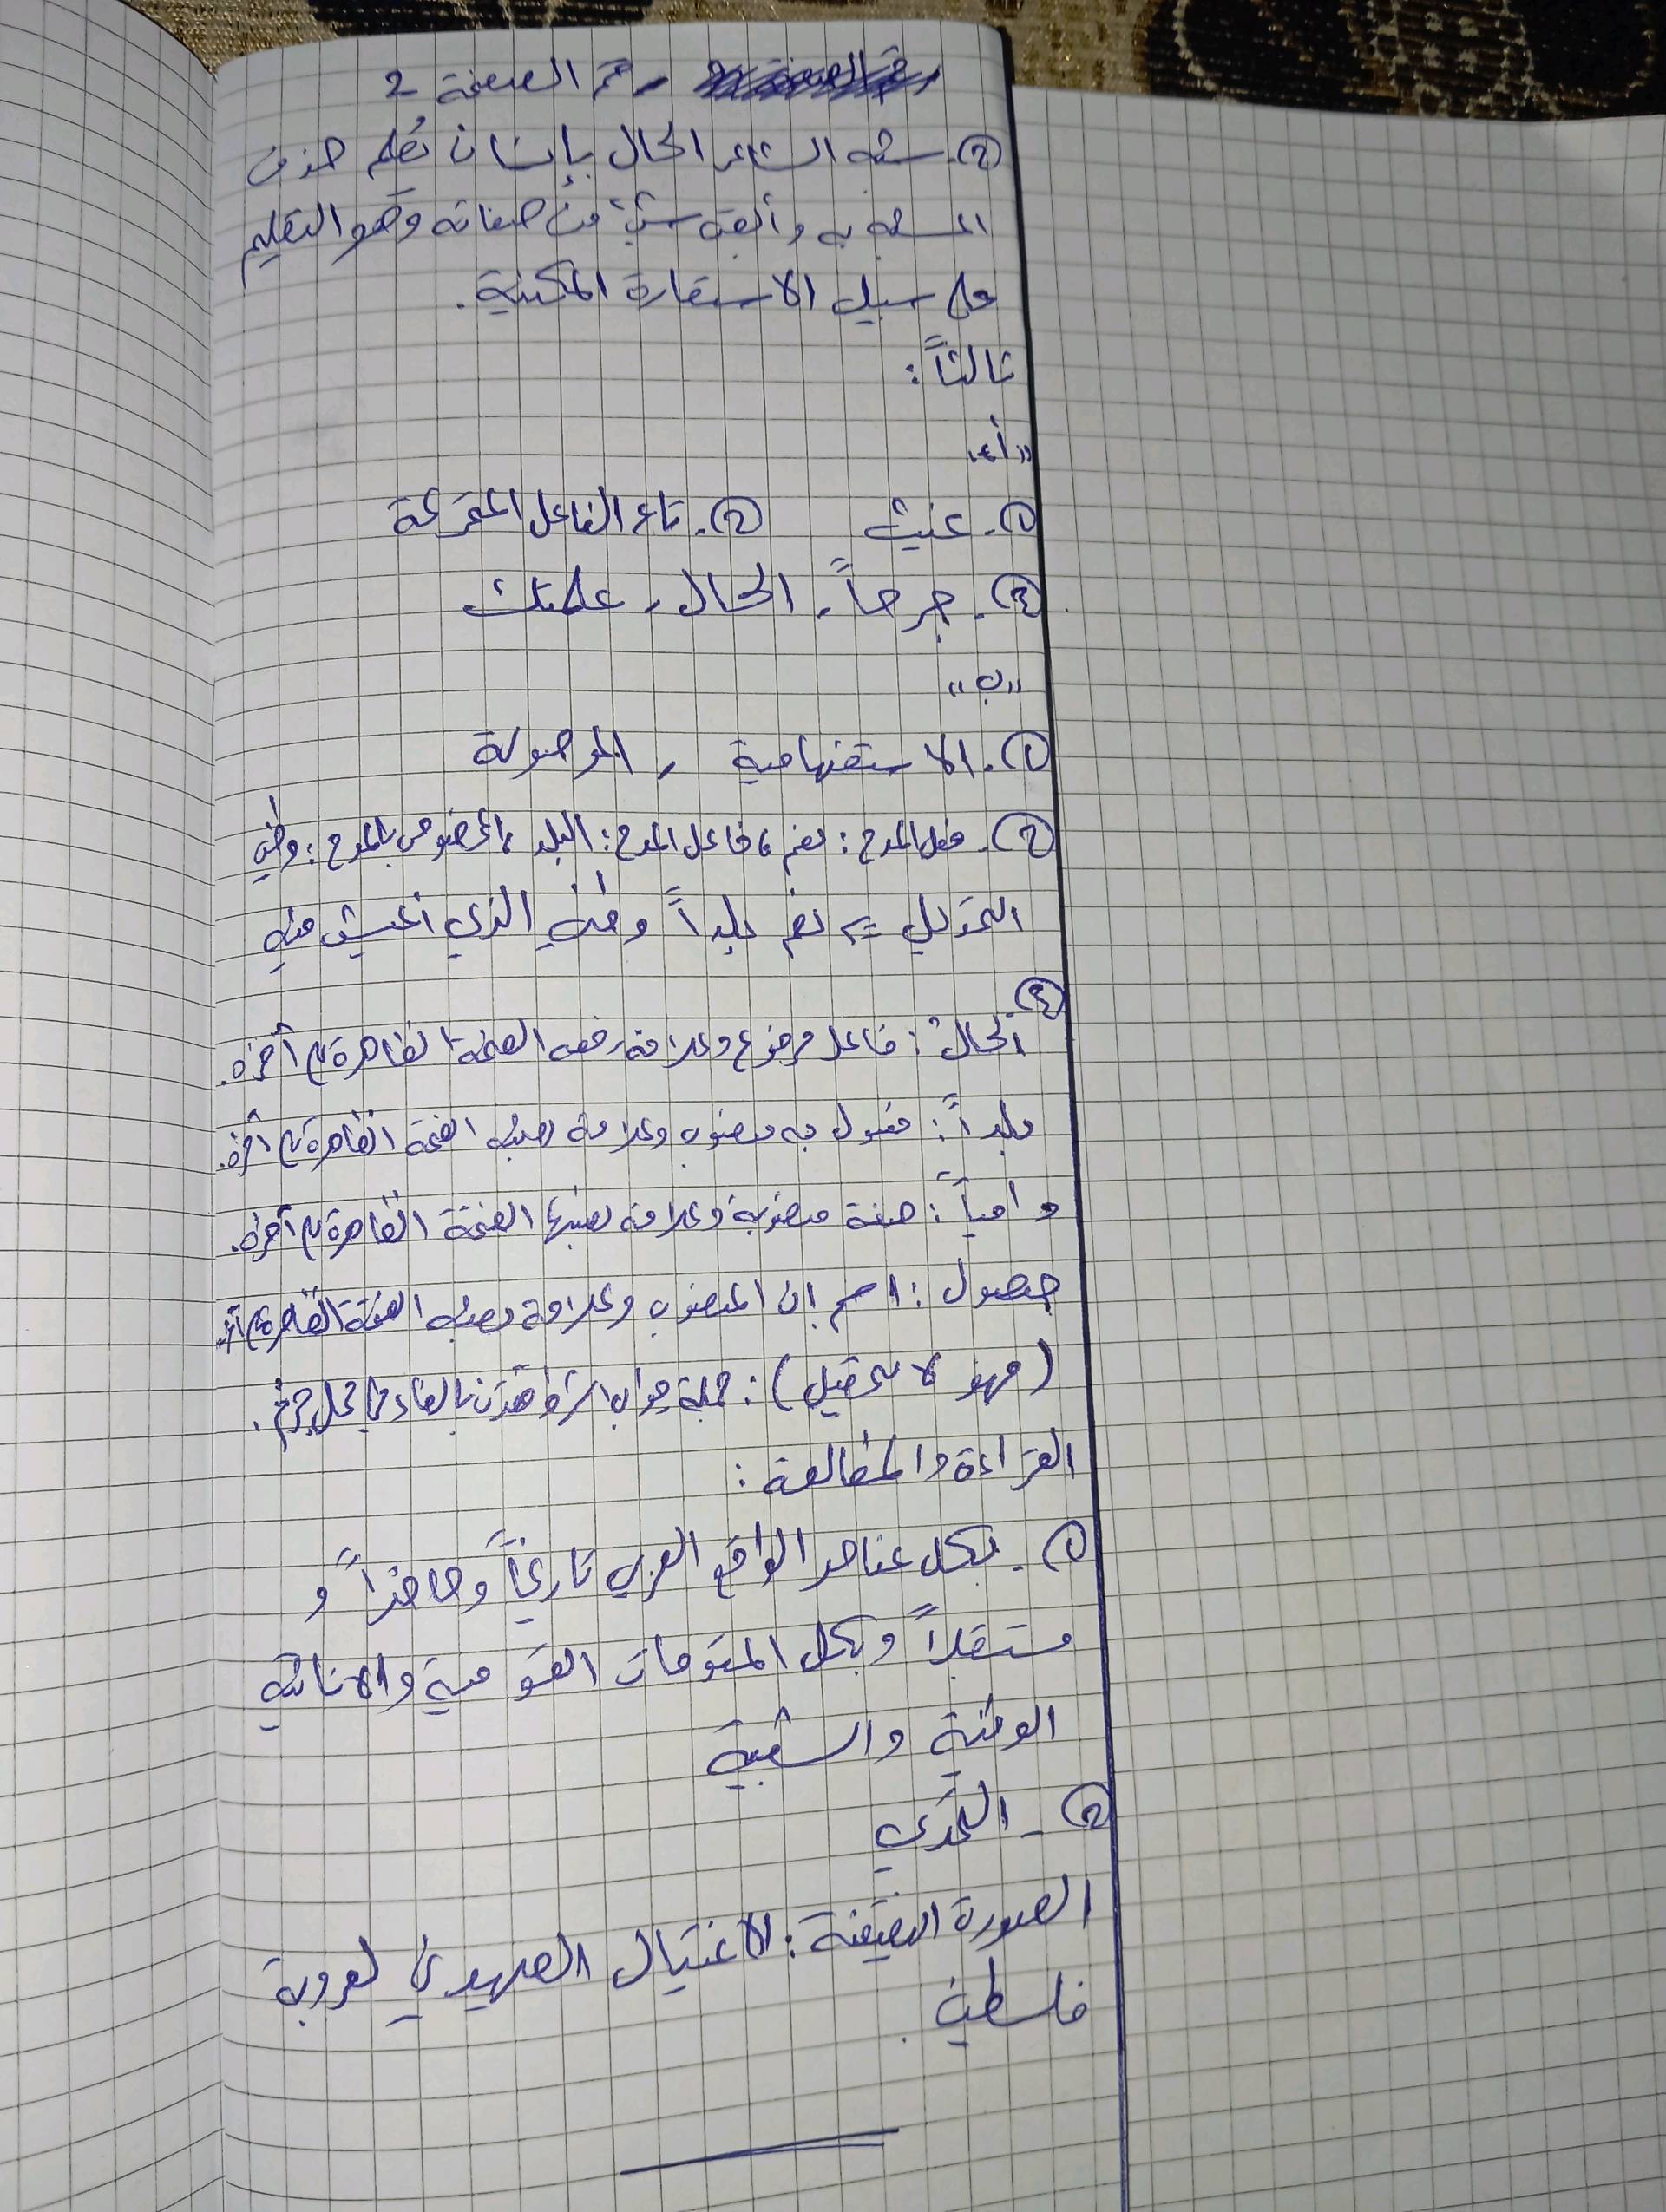 رقم الصفحة 2
②. شبه الشاعر الحال بإنسان يُعلم حذف
المشبه به وأبقى شيئاً من صفاته وهو التعليم
على سبيل الاستعارة المكنية.
ثالثاً:
"أ"
①. عنيت ②. تاء الفاعل المتحركة
③. جرحاً، الحال، علمتك
"ب"
①. الاستفهامية، الموصولة
②. فعل المدح: نعم، فاعل المدح: البلد، المخصوص بالمدح: وطني
التحويل = نعم بلداً وطني الذي أعيش فيه
③
الحالُ: فاعل مرفوع وعلامة رفعه الضمة الظاهرة على آخره.
بلداً: مفعول به منصوب وعلامة نصبه الفتحة الظاهرة على آخره.
وامياً: صفة منصوبة وعلامة نصبها الفتحة الظاهرة على آخره.
حصول: اسم إن المنصوب وعلامة نصبه الفتحة الظاهرة على
(فهو لا): جملة جواب الشرط بالفاء في محل جزم.
القراءة والمطالعة:
①. بكل عناصر الواقع العربي تاريخاً وحاضراً و
مستقبلاً وبكل المقومات القومية
الوطنية والشعبية
②- التحدي
الصورة: الاغتيال الصهيوني لعروبة
فلسطين.